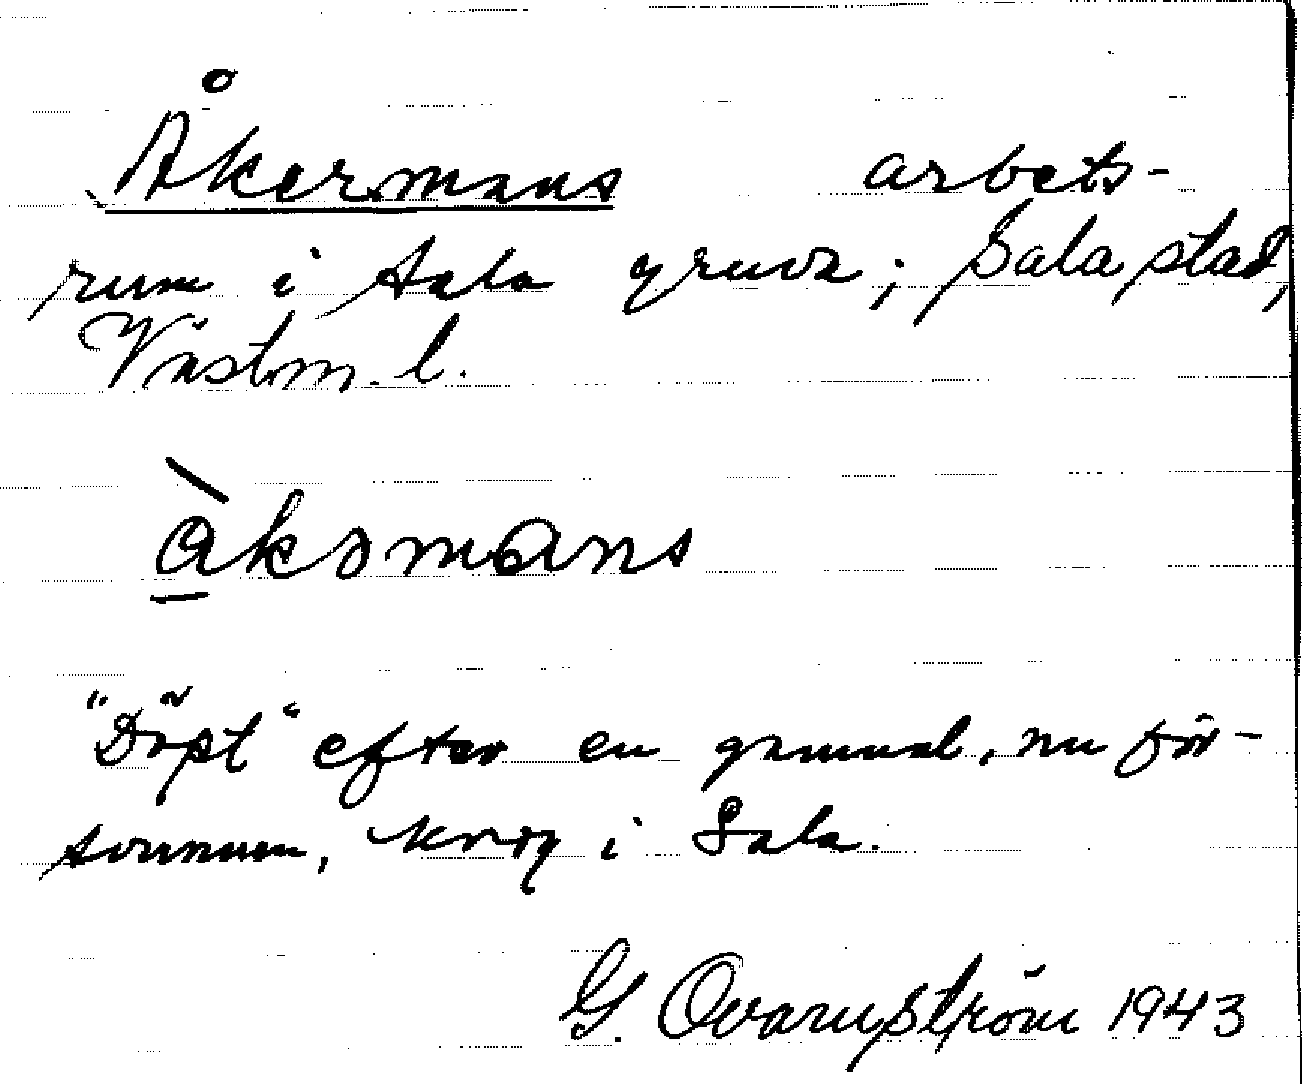 Åkermans arbets-
rum i Sala gruva; Sala stad,
Västm. l.
åkərmans
"Döpt" efter en gammal, nu för-
svunnen, krog i Sala.
G. Qvarnström 1943